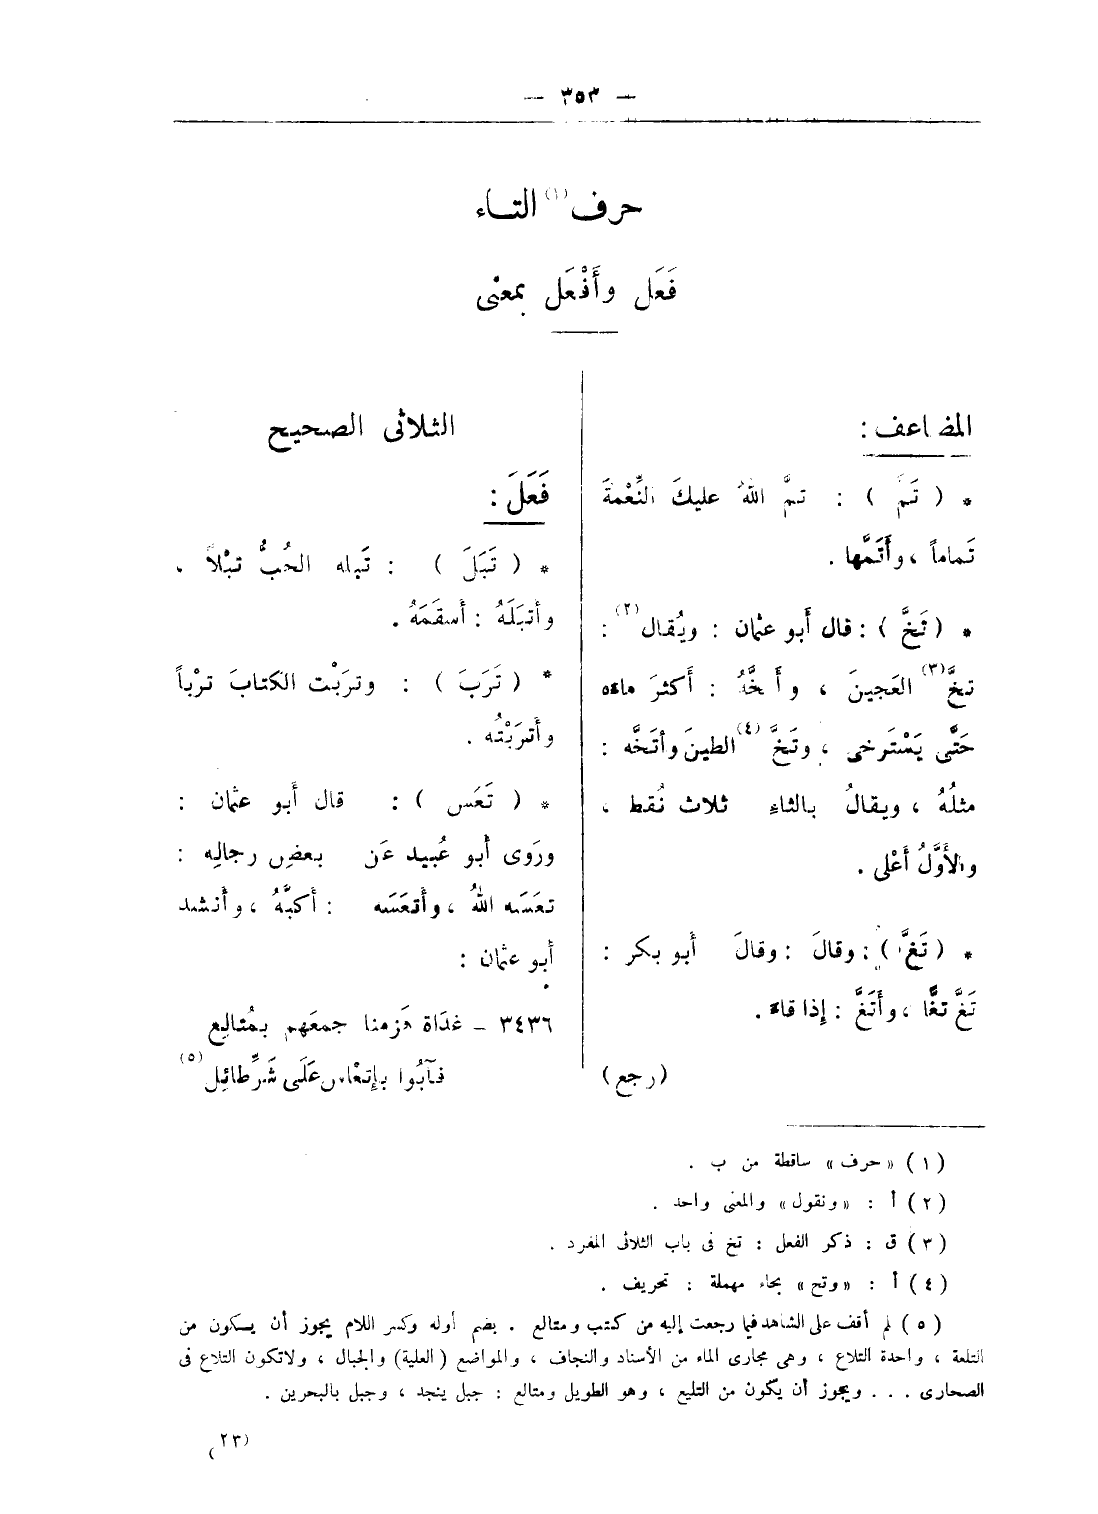 — ٣٥٣ —
حرف (١) التاء
فَعَل وأَفْعَل بمعنى
المضاعف :
* ( تَمَّ ) : تمَّ اللهُ عليكَ النِّعْمةَ
تَماماً ، وأَتَمَّها .
* ( تَخَّ ) : قال أَبو عثمان : ويُقال (٢) :
تخَّ (٣) العَجينَ ، وأَتخَّهُ : أَكثرَ ماءَه
حَتَّى يَسْتَرخى ، وتَخَّ (٤) الطينَ وأَتَخَّه :
مثلُهُ ، ويقالُ بالثاءِ ثلاث نُقط ،
والأَوَّلُ أَعْلى .
* ( تَغَّ ) : وقالَ : وقالَ أَبو بكر :
تَغَّ تغًّا ، وأَتَغَّ : إِذا قاءَ .
(رجع)
الثلاثى الصحيح
فَعَلَ :
* ( تَبَلَ ) : تَبله الحُبُّ تبْلاً ،
وأَتبَلَهُ : أَسقَمَهُ .
* ( تَرَبَ ) : وترَبْت الكتابَ ترْباً
وأَترَبْتُه .
* ( تَعَس ) : قال أَبو عثمان :
ورَوى أَبو عُبيد عَن بعضِ رجالِه :
تعَسَه اللهُ ، وأَتعَسَه : أَكبَّهُ ، وأَنشد
أَبو عثمان :
٣٤٣٦ – غدَاة هَزمنا جمعَهم بمُتالِع
فآبُوا بإِتعْاسٍ عَلَى شَرِّ طائِل (٥)
(١) «حرف» ساقطة من ب .
(٢) أ : «ونقول» والمعنى واحد .
(٣) ق : ذكر الفعل : تخ فى باب الثلاثى المفرد .
(٤) أ : «وتح» بحاء مهملة : تحريف .
(٥) لم أقف على الشاهد فيما رجعت إليه من كتب ومتالع . بضم أوله وكسر اللام يجوز أن يكون من
التلعة ، واحدة التلاع ، وهى مجارى الماء من الأسناد والنجاف ، والمواضع (العلية) والجبال ، ولاتكون التلاع فى
الصحارى . . . ويجوز أن يكون من التليع ، وهو الطويل ومتالع : جبل بنجد ، وجبل بالبحرين .
(٢٣)